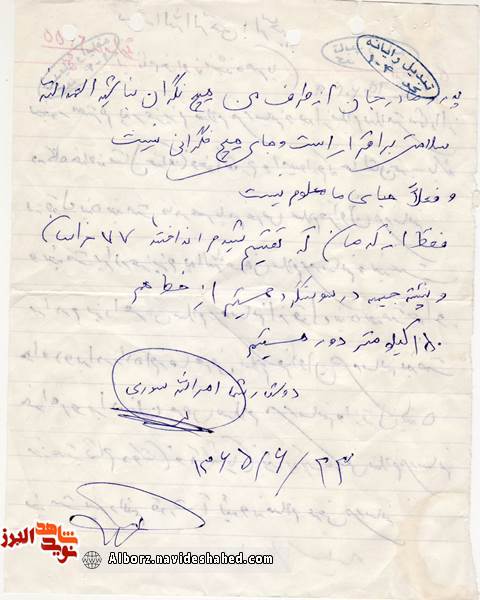 تبدیل رایانه
پدر و مادر جان از طرف من هیچ نگران نباشید الحمدالله
سلامتی برقرار است و جای هیچ نگرانی نیست
و فعلاً جای ما معلوم نیست
فقط از که مان که تقسیم شدیم انداختند ۷۷ خراسان
و پشت جبهه در سوسنگرد هستیم از خط هم
۱۵۰ کیلو متر دور هستیم
دوستدار شما امراله سوری
۱۳۶۵/۶/۲۳
نوید شاهد البرز
Alborz.navideshahed.com